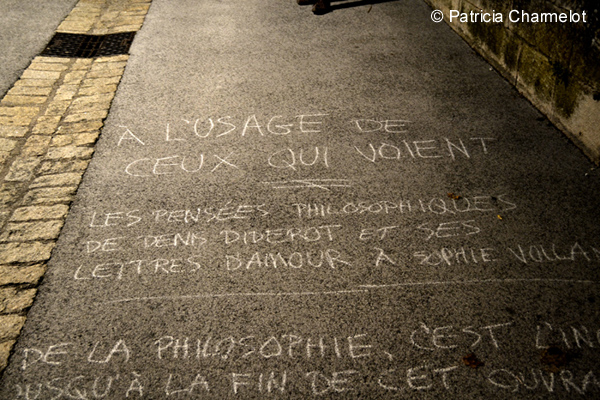 © Patricia Chamelot
À L'USAGE DE
CEUX QUI VOIENT
LES PENSÉES PHILOSOPHIQUES
DE DENIS DIDEROT ET SES
LETTRES D'AMOUR À SOPHIE VOLLAN
DE LA PHILOSOPHIE, C'EST L'IN
JUSQU'À LA FIN DE CET OUVRA